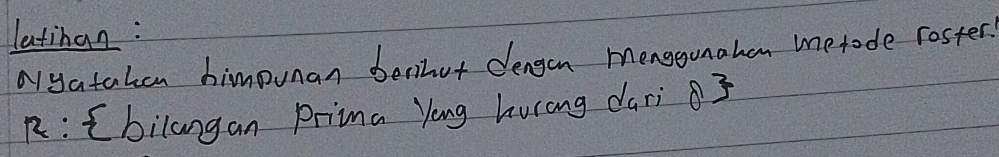 latihan :
Nyatakan himpunan berikut dengan menggunakan metode roster!
R : { bilangan Prima Yang kurang dari 8 }